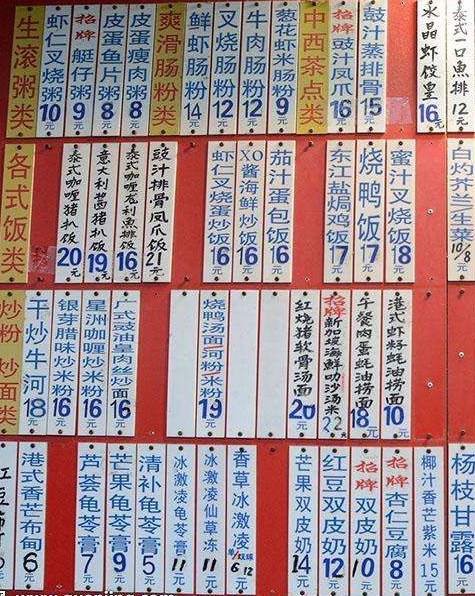 生滚粥类
虾仁叉烧粥 10元
招牌艇仔粥 9元
皮蛋鱼片粥 8元
皮蛋瘦肉粥 8元
爽滑肠粉类
鲜虾肠粉 14元
叉烧肠粉 12元
牛肉肠粉 12元
葱花虾米肠粉 9元
中西茶点类
招牌豉汁凤爪 16元
豉汁蒸排骨 15元
水晶虾饺皇 16元
泰式一口魚排 12元
各式饭类
泰式咖喱猪扒饭 20元
意大利酱猪扒饭 19元
泰式咖喱龙利魚排饭 16元
豉汁排骨凤爪饭 21元
虾仁叉烧蛋炒饭 16元
XO酱海鲜炒饭 16元
茄汁蛋包饭 16元
东江盐焗鸡饭 17元
烧鸭饭 17元
蜜汁叉烧饭 18元
白灼芥兰生菜 10/8元
炒粉 炒面类
干炒牛河 18元
银芽腊味炒米粉 16元
星洲咖喱炒米粉 16元
广式豉油皇肉丝炒面 16元
烧鸭汤面/河粉/米粉 19元
红烧猪软骨汤面 20元
招牌新加坡海鲜叻沙汤米 22元
午餐肉蛋蚝油捞面 18元
港式虾籽蚝油捞面 10元
港式香芒布甸 6元
芦荟龟苓膏 7元
芒果龟苓膏 9元
清补龟苓膏 5元
冰激凌龟苓膏 11元
冰激凌仙草冻 11元
香草冰激凌 单/双球 6 12元
芒果双皮奶 14元
红豆双皮奶 12元
招牌双皮奶 10元
招牌杏仁豆腐 8元
椰汁香芒紫米 15元
杨枝甘露 16元